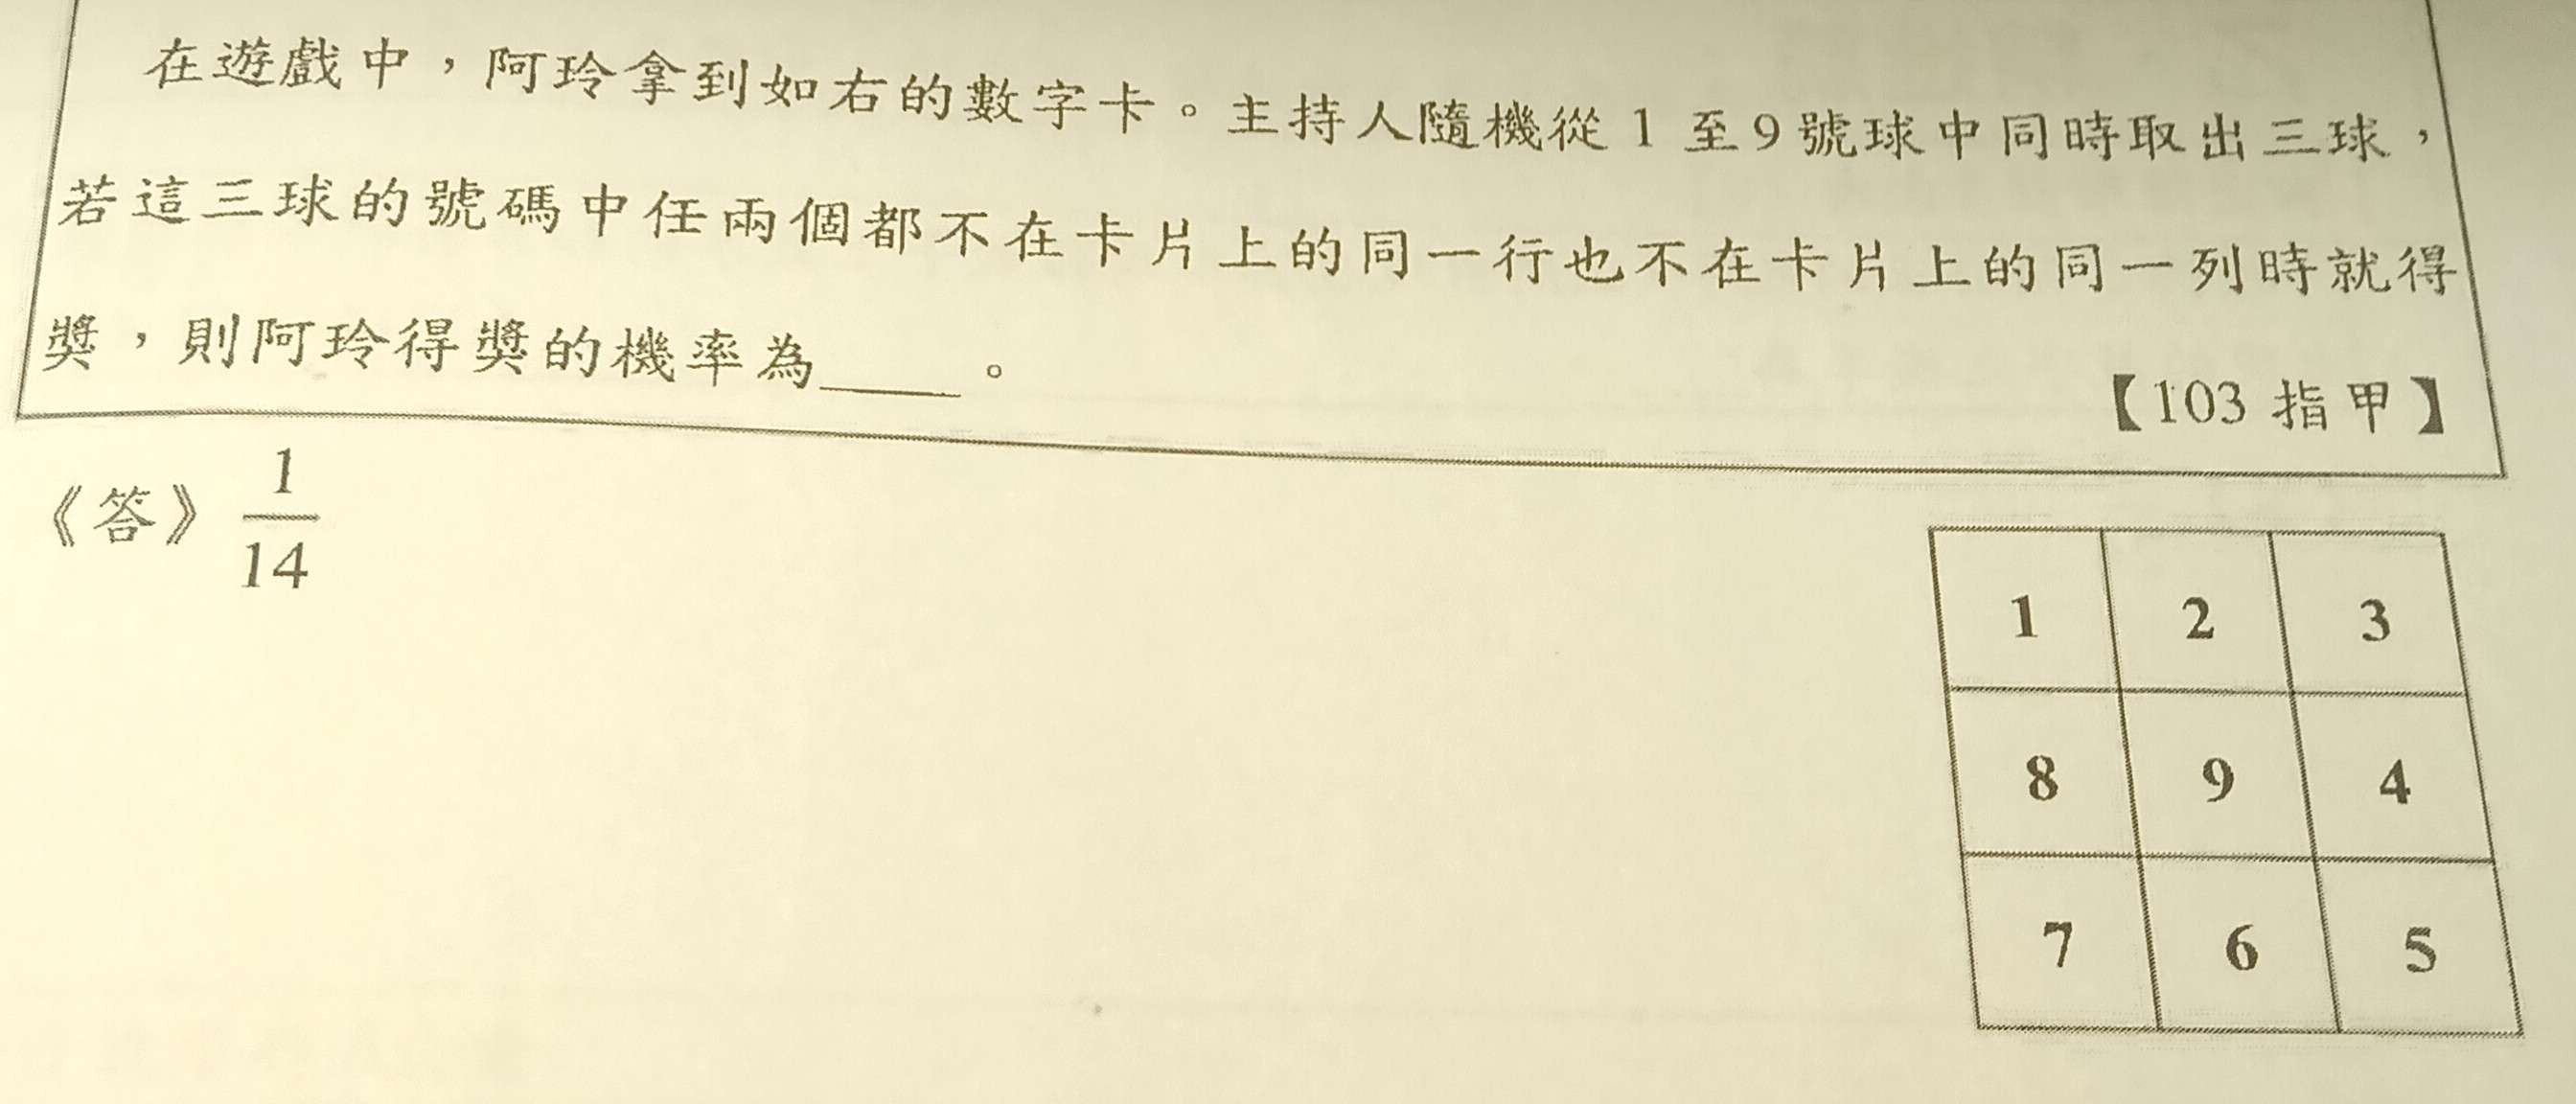 在遊戲中，阿玲拿到如右的數字卡。主持人隨機從 1 至 9 號球中同時取出三球，
若這三球的號碼中任兩個都不在卡片上的同一行也不在卡片上的同一列時就得
獎，則阿玲得獎的機率為____。
【103 指甲】
《答》1/14
1 2 3
8 9 4
7 6 5